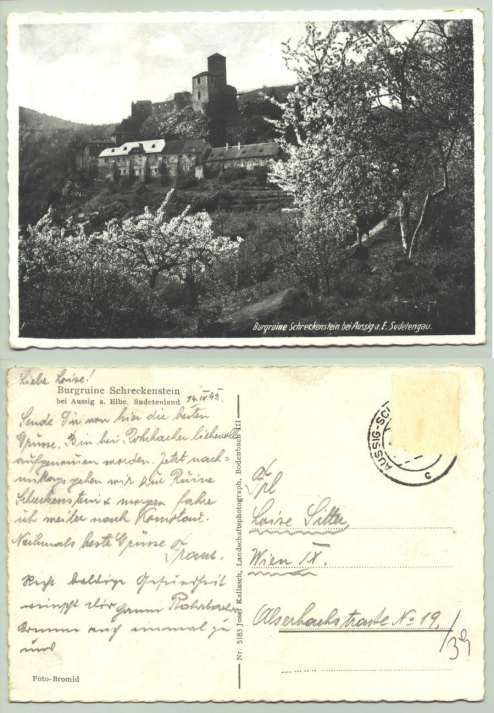 Burgruine Schreckenstein bei Aussig a. E. Sudetengau.
Liebe Loise!
Burgruine Schreckenstein
bei Aussig a. Elbe, Sudetenland
Sende Dir von hier die besten
Grüsse. Bin bei Rohrbacher liebevoll
aufgenommen worden. Jetzt nach-
mittags gehen wir zum Ruine
Schreckenstein & morgen fahre
ich weiter nach Komotau.
Nochmals beste Grüsse
Franz.
Recht baldige Gesundheit
wünscht Dir
komme auch einmal zu
uns
Foto-Bromid
Nr. 5183 Josef Kallasch, Landschaftsphotograph, Bodenbach III
AUSSIG-SCH
c
Frl
Loise Sitte
Wien IX.
Alserbachstrasse No 19.
/39